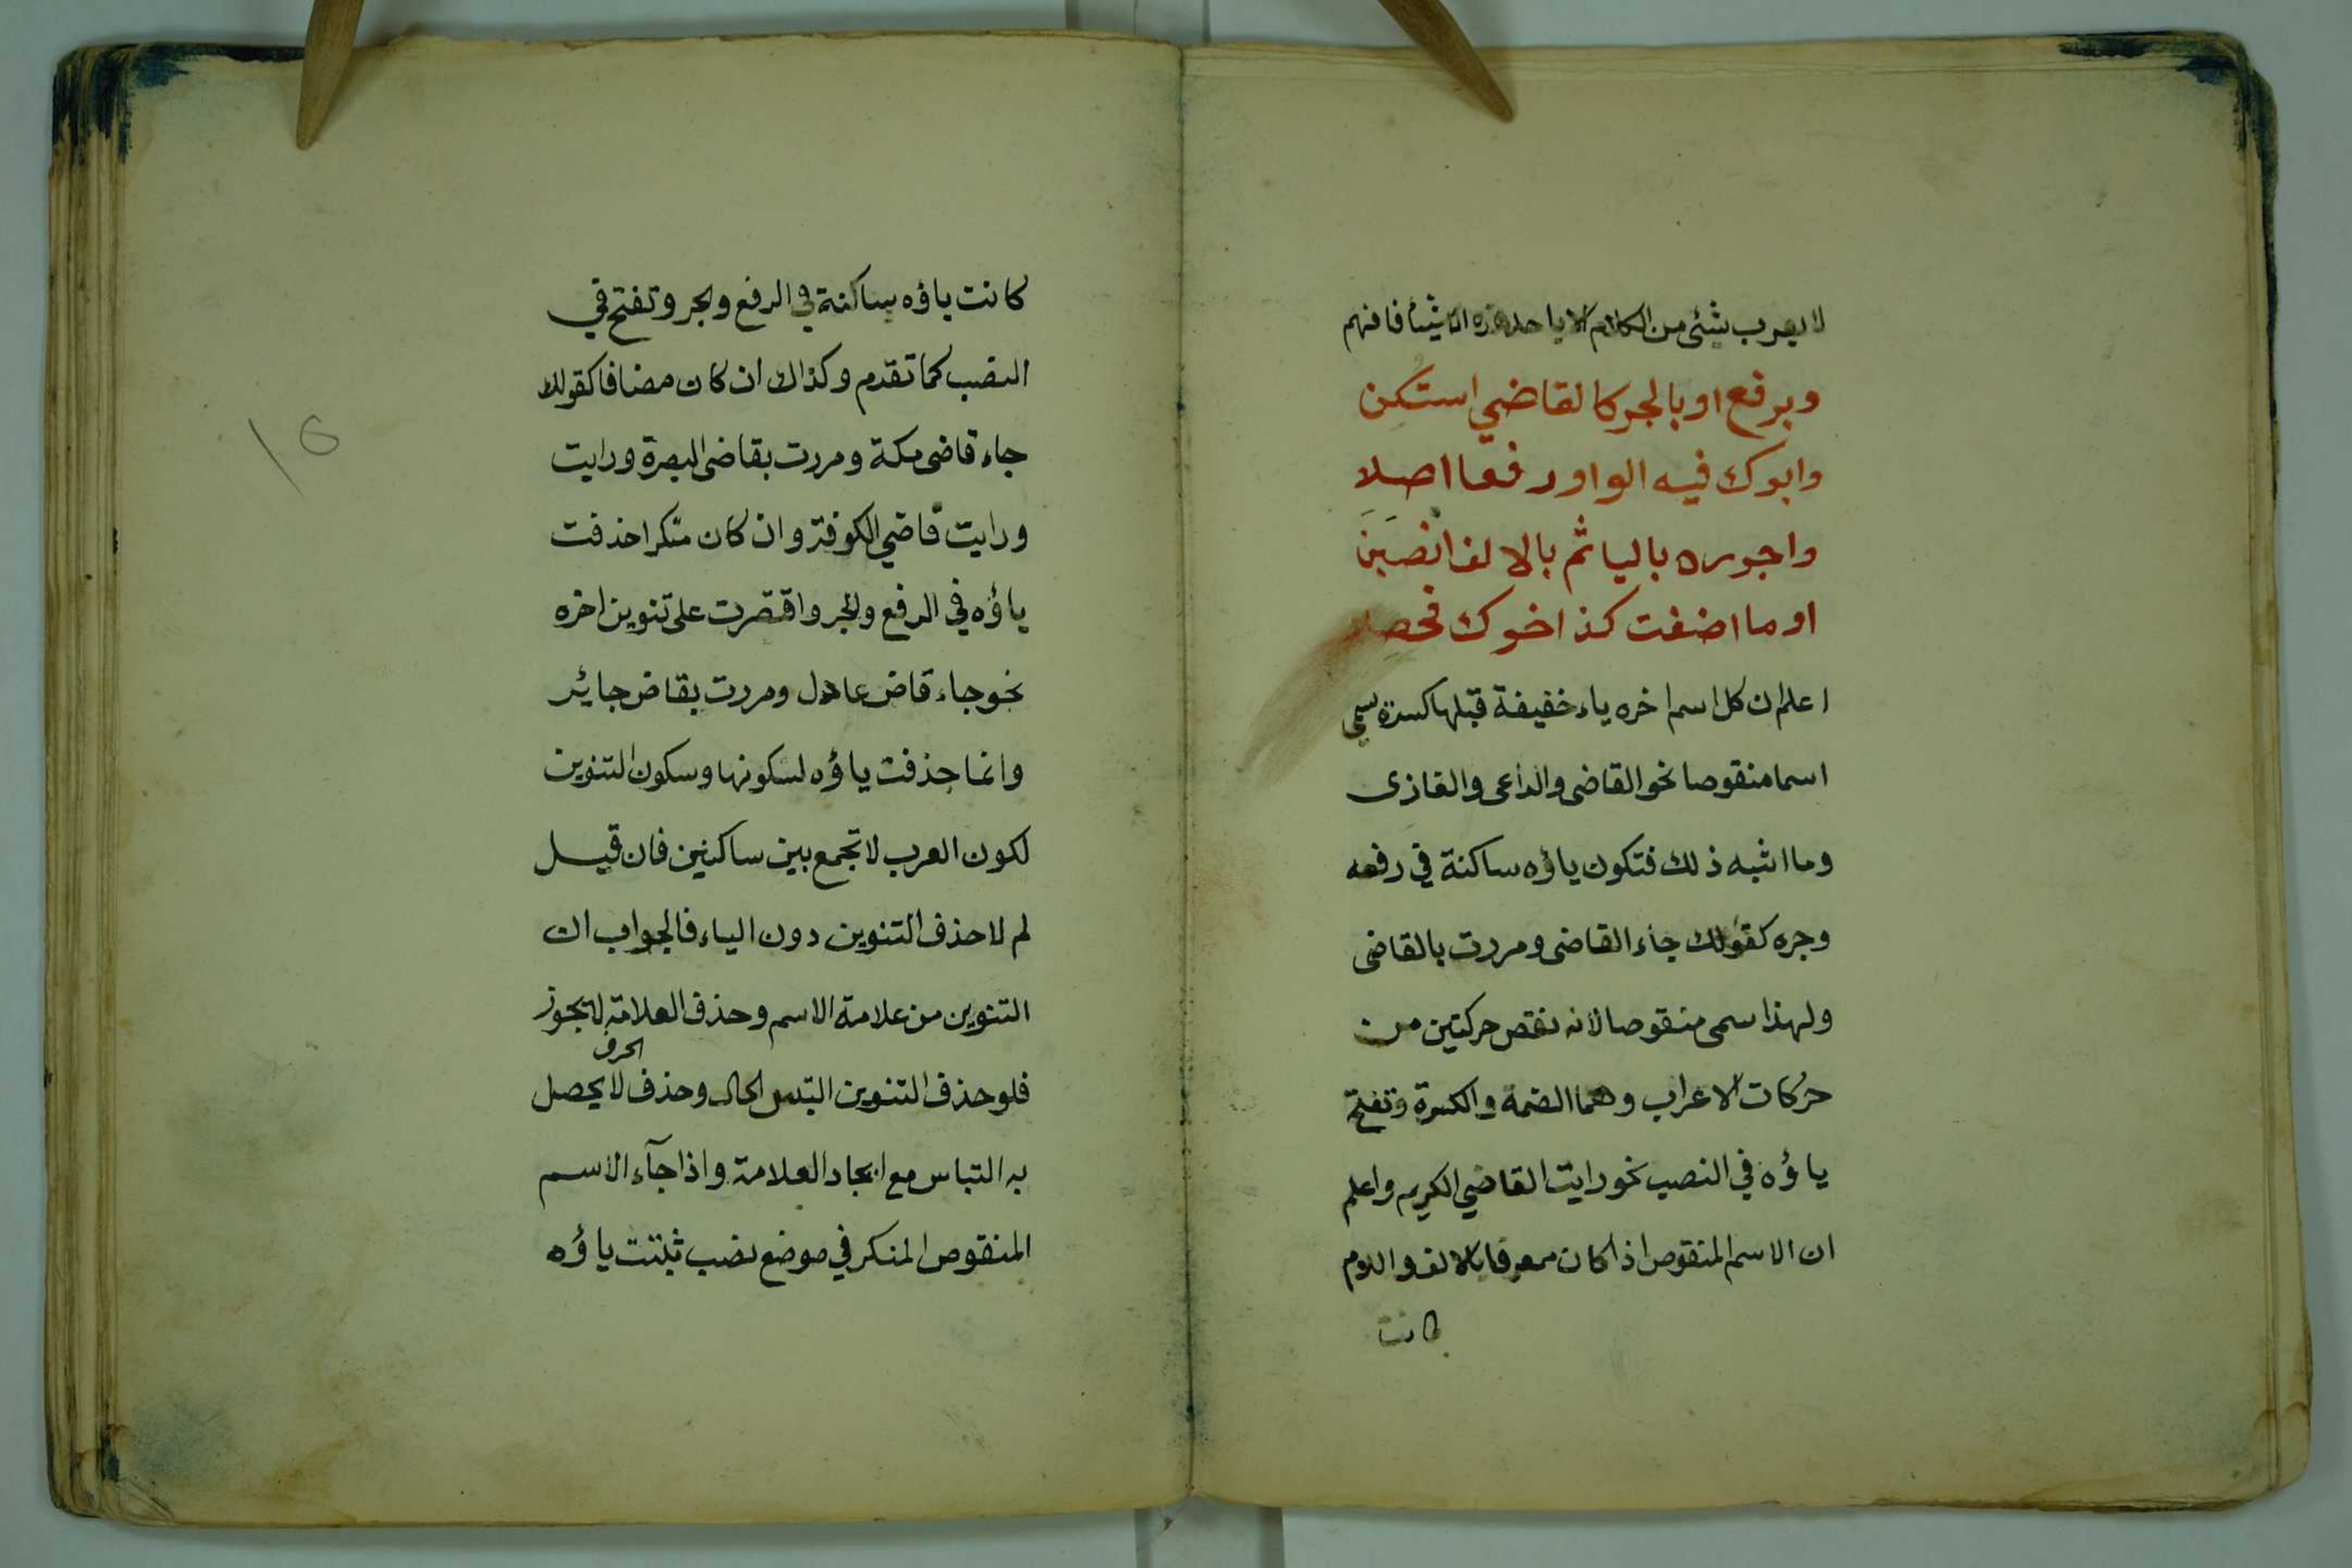 لا يعرب شئ من الكلام الا باحد هذه الاشياء فافهم
وبرفع او بالجر كالقاضي استكن
وابوك فيه الواو رفعا اصلا
واجوره باليا ثم بالالف انصبن
او ما اضفت كذا اخوك فحصلا
اعلم ان كل اسم اخره ياء خفيفة قبلها كسرة سمي
اسما منقوصا نحو القاضى والداعى والغازى
وما اشبه ذلك فتكون ياؤه ساكنة في رفعه
وجره كقولك جاء القاضى ومررت بالقاضى
ولهذا سمى منقوصا لانه نقص حركتين من
حركات الاعراب وهما الضمة والكسرة وتفتح
ياؤه في النصب نحو رايت القاضي الكريم واعلم
ان الاسم المنقوص اذا كان معرفا بالالف واللام
كانت
كانت ياؤه ساكنة في الرفع والجر وتفتح في
النصب كما تقدم وكذلك ان كان مضافا كقولك
جاء قاضى مكة ومررت بقاضى البصرة ورايت
ورايت قاضي الكوفة وان كان منكرا حذفت
ياؤه في الرفع والجر واقتصرت على تنوين اخره
نحو جاء قاض عادل ومررت بقاض جائر
وانما حذفت ياؤه لسكونها وسكون التنوين
لكون العرب لا تجمع بين ساكنين فان قيل
لم لا حذف التنوين دون الياء فالجواب ان
التنوين من علامة الاسم وحذف العلامة لا يجوز
فلو حذف التنوين التبس الحال وحذف الحرف لا يحصل
به التباس مع ايجاد العلامة واذا جآء الاسم
المنقوص المنكر في موضع نصب ثبتت ياؤه